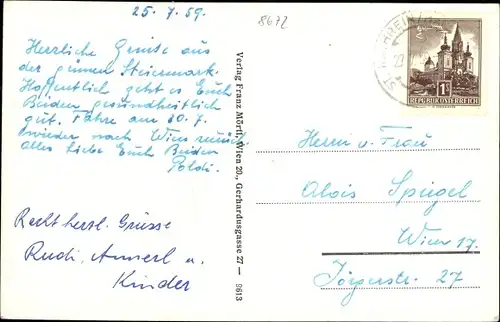 25. 7. 59.
8672
Herzliche Grüsse aus
der grünen Steiermark.
Hoffentlich geht es Euch
Beiden gesundheitlich
gut. Fahre am 30. 7.
wieder nach Wien zurück
alles liebe Euch Beiden
Poldi.
Recht herzl. Grüsse
Rudi, Annerl u.
Kinder
Verlag Franz Mörtl, Wien 20., Gerhardusgasse 27 — 9613
ST.
1S
REPUBLIK ÖSTERREICH
Herrn u. Frau
Alois Spiegel
Wien 17.
Jörgerstr. 27